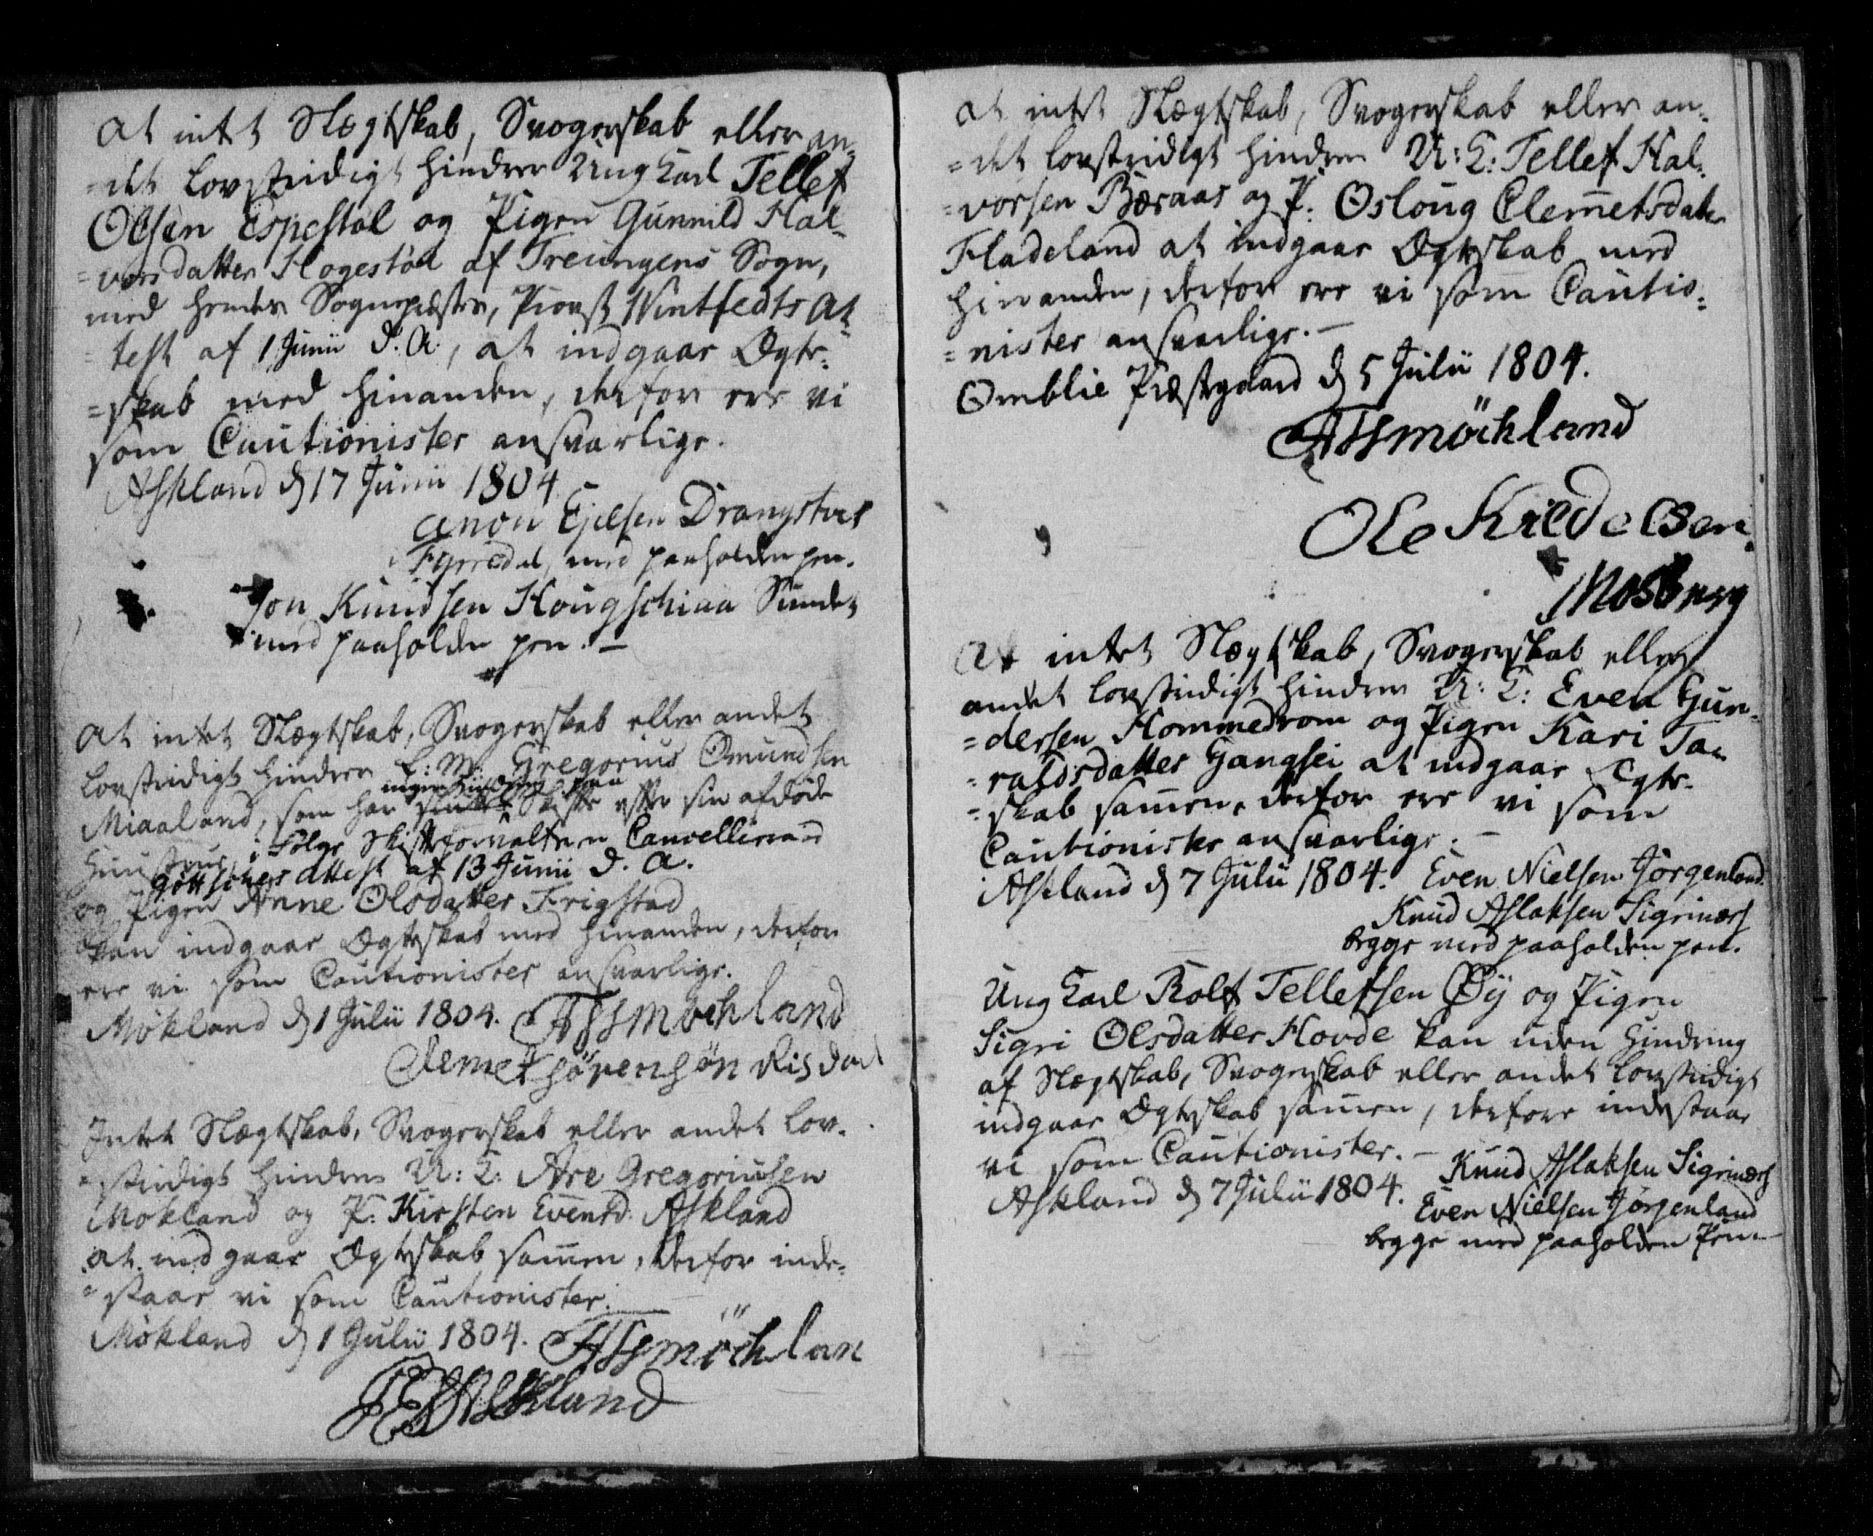 At intet Slægtskab, Svogerskab eller an¬
=det lovstridigt hindrer Ung Karl Tellef
Olsen Espestøl og Pigen Gunnild Hal¬
=vorsdatter Hogestøl af Treungens Sogn,
med hendes Sognepræstes, Provst Wintfedts At¬
=test af 1 Junii d. A., at indgaae Ægte¬
=skab med hinanden, derfor ere vi
som Cautionister ansvarlige.
Askland d 17 Junii 1804
Anon Ejelsen Drangstvet
Fyrredal, med paaholden pen.
Jon Knudsen Hougschiaa Sundet
med paaholden pen. —
At intet Slægtskab, Svogerskab eller andet
lovstridigt hindrer E: M: Gregorius Omundsen
ingen hindring paa
Miaaland, som har Skifte efter sin afdøde
Huustrue, i Følge Skifteforvalteren Cancelliraad
Gøttschers Attest af 13 Junii d. A.
og Pigen Anne Olsdatter Frigstad
kan indgaae Ægteskab med hinanden, derfor
ere vi som Cautionister ansvarlige.
Møkland d 1 Julii 1804. ATSmøchland
Clemet Sørensøn Risdal
Intet Slægtskab, Svogerskab eller andet lov¬
=stridigt hindrer U: K: Are Gregoriusen
Mokland og P: Kirsten Evensd. Askland
at indgaae Ægteskab sam̄en, derfor inde¬
=staae vi som Cautionister.
Møkland d 1 Julii 1804. ATSmöchlan
Askland
At intet Slægtskab, Svogerskab eller an¬
=det lovstridigt hindrer U: K: Tellef Hal¬
=vorsen Bæraas og P: Osloug Clemetsdatter
Fladeland at indgaae Ægteskab med
hinanden, derfor ere vi som Cautio¬
=nister ansvarlige. —
Omblie Præstgaard d 5 Julii 1804.
ATSmöchland
Ole Kieldelsen
Mosberg
At intet Slægtskab, Svogerskab eller
andet lovstridigt hindrer U: K: Even Gun¬
=dersen Hommedrom og Pigen Kari Ta¬
=raldsdatter Gangsei at indgaae Ægte¬
=skab sam̄en, derfor ere vi som
Cautionister ansvarlige. —
Askland d 7 Julii 1804. Even Nielsen Jørgenland
Knud Aslaksen Sigrinæs
begge med paaholden pen.
Ung Karl Rolf Tellefsen Øy og Pigen
Sigri Olsdatter Hovde kan uden Hindring
af Slægtskab, Svogerskab eller andet lovstridigt
indgaae Ægteskab sam̄en, derfore indestaae
vi som Cautionister. —
Askland d 7 Julii 1804. Knud Aslaksen Sigrinæs
Even Nielsen Jørgenland
begge med paaholden Pen. —